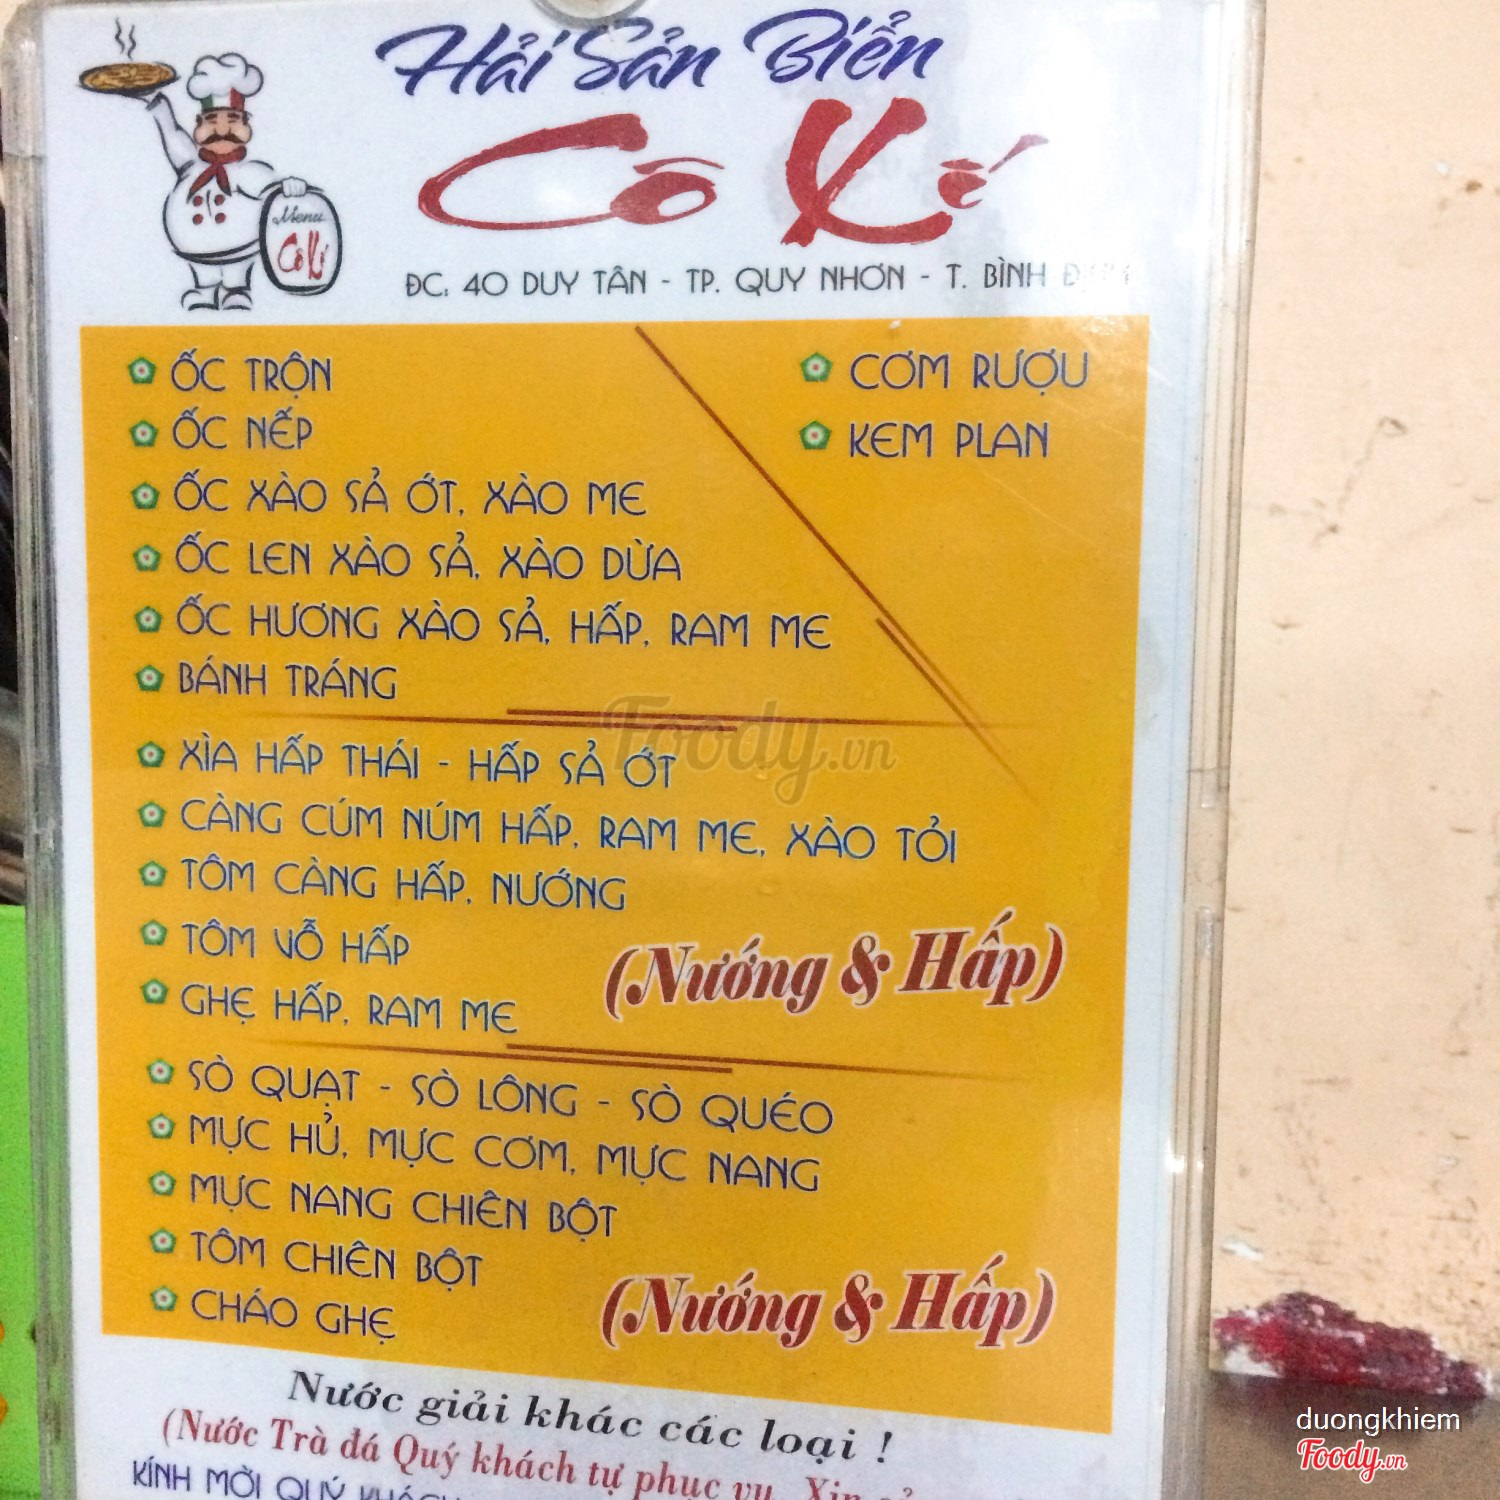 Hải Sản Biển
Cô Kế
Menu
ĐC. 40 DUY TÂN - TP. QUY NHƠN - T. BÌNH
ỐC TRỘN
ỐC NẾP
ỐC XÀO SẢ ỚT, XÀO ME
ỐC LEN XÀO SẢ, XÀO DỪA
ỐC HƯƠNG XÀO SẢ, HẤP, RAM ME
BÁNH TRÁNG
CƠM RƯỢU
KEM PLAN
XÌA HẤP THÁI - HẤP SẢ ỚT
CÀNG CÚM NÚM HẤP, RAM ME, XÀO TỎI
TÔM CÀNG HẤP, NƯỚNG
TÔM VỖ HẤP
GHẸ HẤP, RAM ME
(Nướng & Hấp)
SÒ QUẠT - SÒ LÔNG - SÒ QUÉO
MỰC HỦ, MỰC CƠM, MỰC NANG
MỰC NANG CHIÊN BỘT
TÔM CHIÊN BỘT
CHÁO GHẸ
(Nướng & Hấp)
Nước giải khác các loại !
(Nước Trà đá Quý khách tự phục vụ. Xin
KÍNH MỜI QUÝ KHÁCH
Foody.vn
duongkhiem
Foody.vn